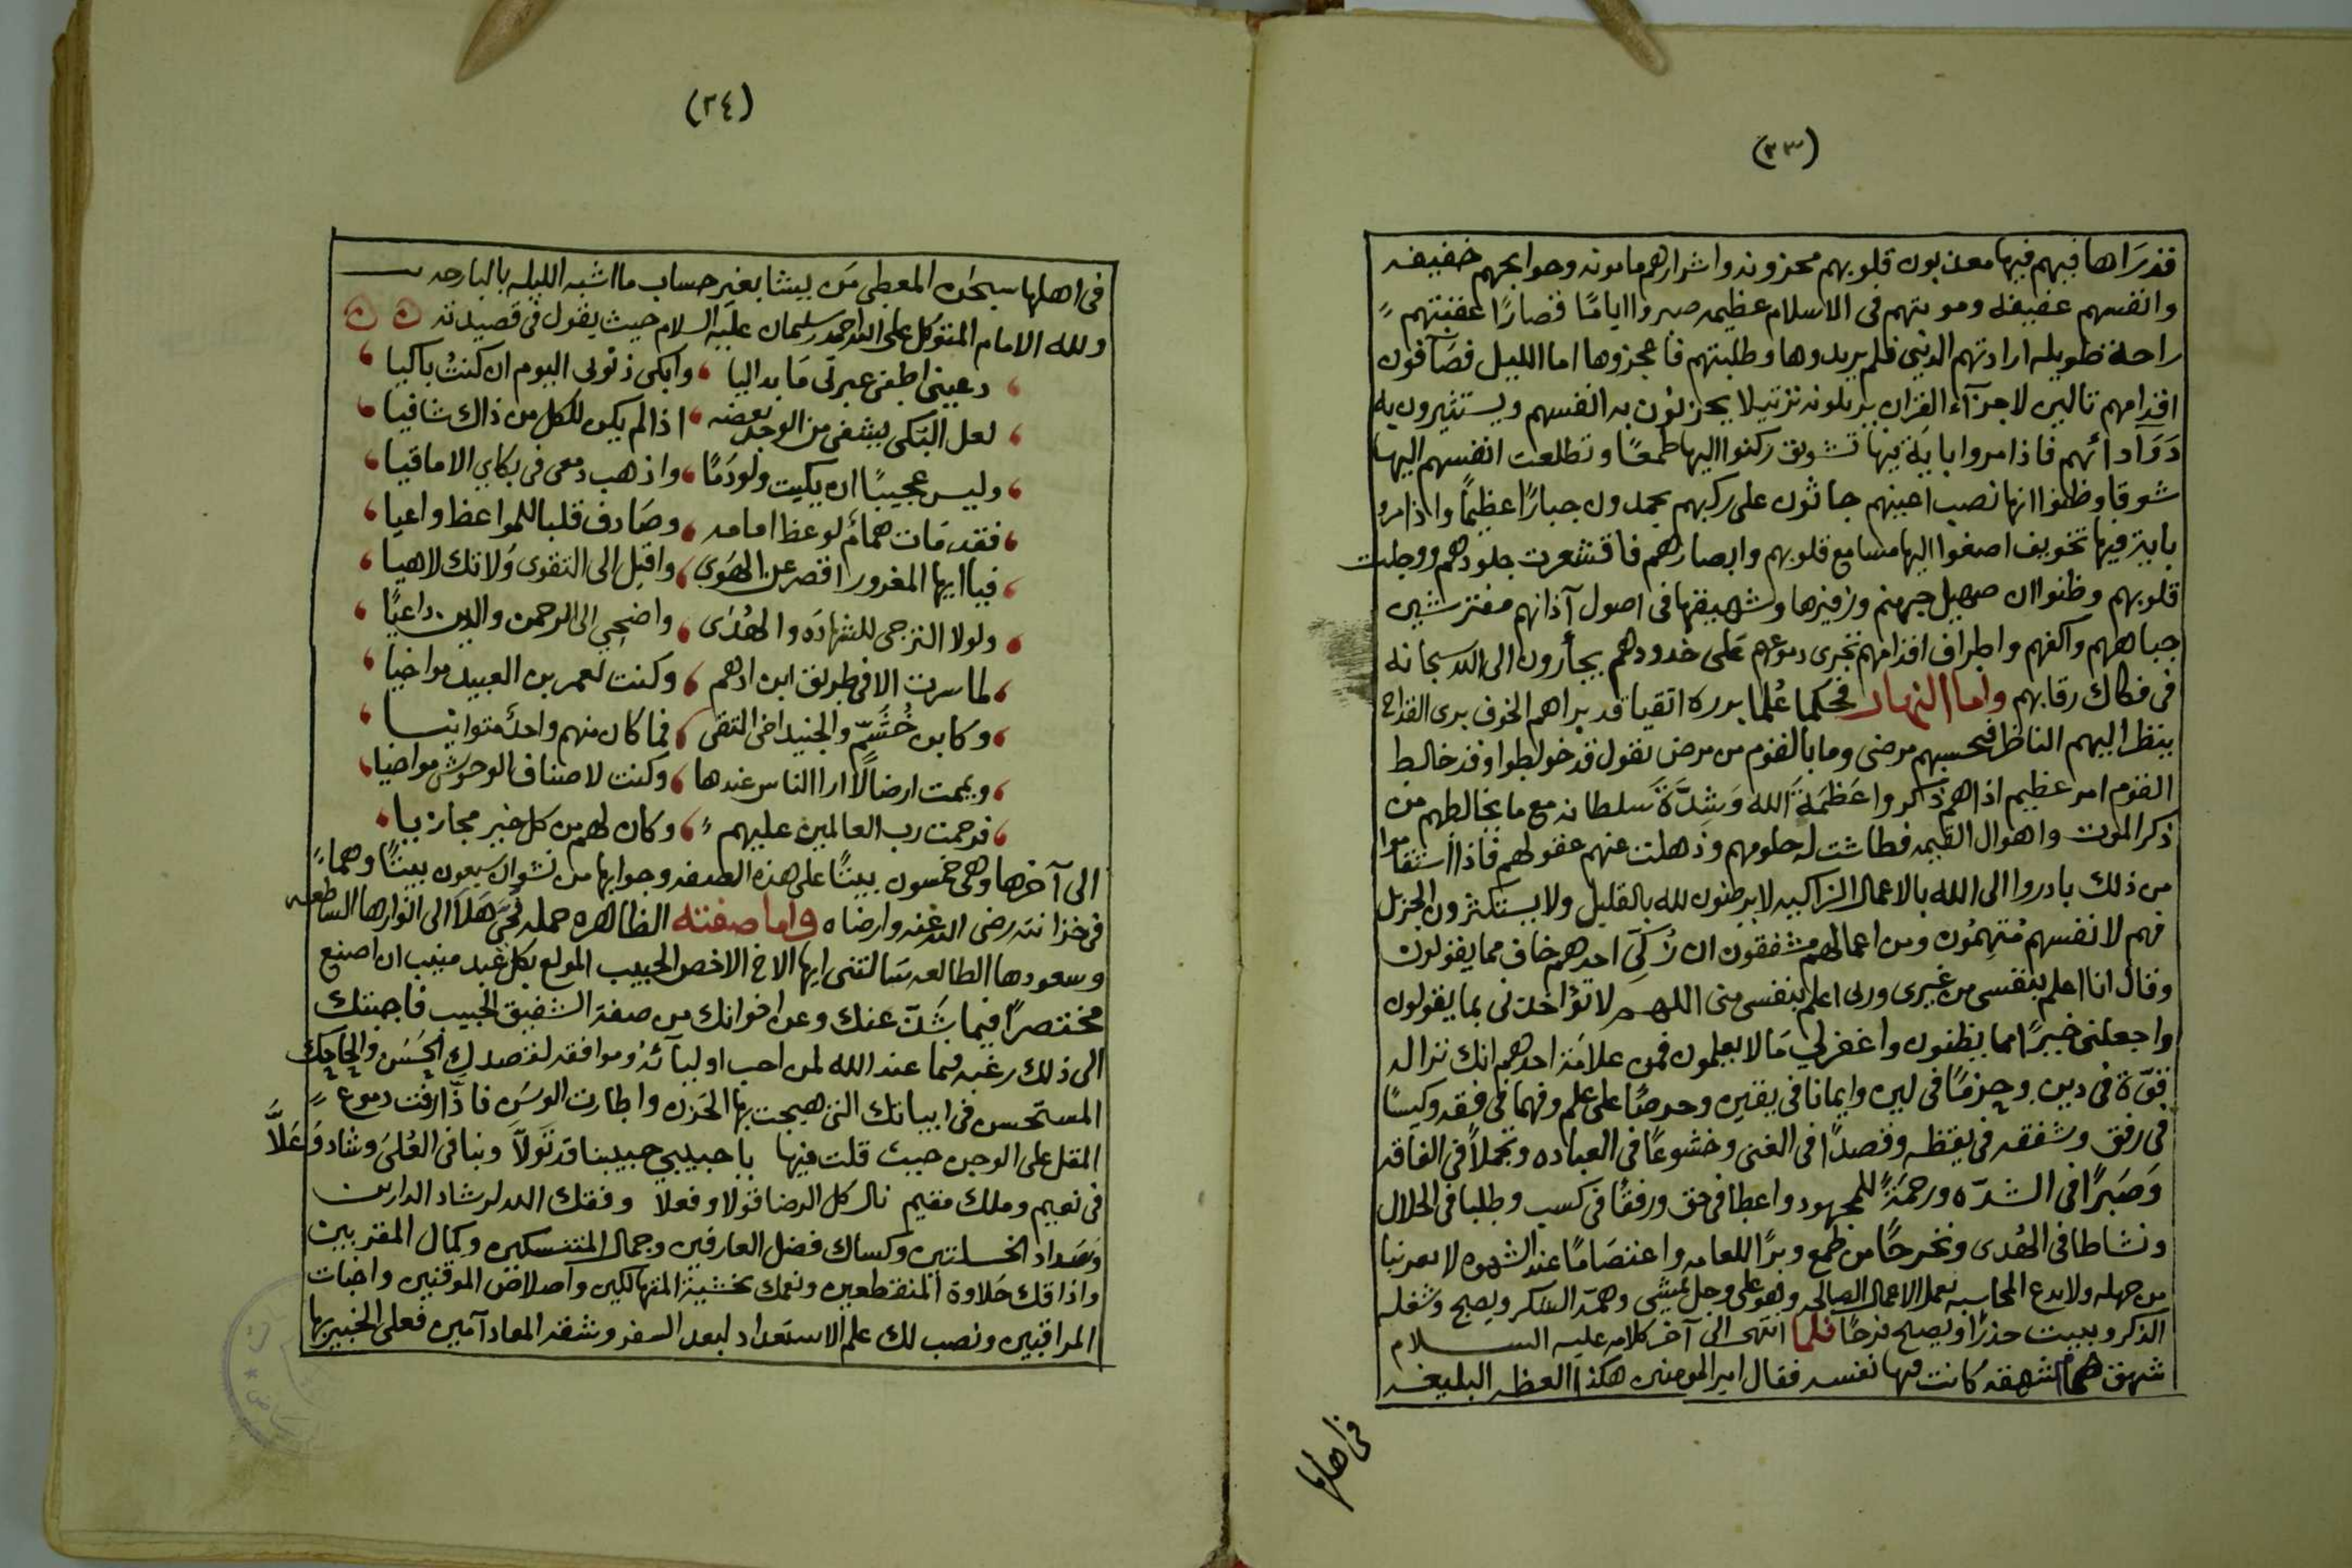 (٣٣)
قد رآها فهم فيها معذبون قلوبهم محزونه واشرارهم مامونه وحوايجهم خفيفه
وانفسهم عفيفه ومونتهم في الاسلام عظيمه صبروا اياما قصارًا اعقبتهم
راحة طويله ارادتهم الدنيا فلم يريدوها وطلبتهم فاعجزوها اما الليل فصآفون
اقدامهم تالين لاجزآء القران يرتلونه ترتيلا يحزنون به انفسهم ويستثيرون به
دَوَاء دائهم فاذا مروا باية فيها تشويق ركنوا اليها طمعًا وتطلعت انفسهم اليها
شوقا وظنوا انها نصب اعينهم جاثون على ركبهم يمجدون جبارًا عظيمًا واذا مرو
باية فيها تخويف اصغوا اليها مسامع قلوبهم وابصارهم فاقشعرت جلودهم ووجلت
قلوبهم وظنوا ان صهيل جهنم وزفيرها وشهيقها في اصول آذانهم مفترشين
جباههم واكفهم واطراف اقدامهم تجرى دموعهم على خدودهم يجأرون الى الله سبحانه
في فكاك رقابهم واما النهار فحكما عُلما برره اتقيا قد براهم الخوف برى القداح
ينظر اليهم الناظر فيحسبهم مرضى وما بالقوم من مرض يقول قد خولطوا وقد خالط
القوم امر عظيم اذا هم ذكروا عَظَمَةَ الله وَشدَّةَ سَلطانه مع ما يخالطهم من
ذكر الموت واهوال القيمه فطاشت له حلومهم وذهلت عنهم عقولهم فاذا استقاموا
من ذلك بادروا الى الله بالاعمال الزاكيه لا يرضون لله بالقليل ولا يستكثرون الجزيل
فهم لانفسهم مُتهِمُون ومن اعمالهم مشفقون ان زُكِّيَ احدهم خاف مما يقولون
وقال انا اعلم بنفسي من غيرى وربى اعلم بنفسي منى اللهم لا تؤاخذنى بما يقولون
واجعلنى خيرًا مما يظنون واغفر لي مَا لا يعلمون فمن علامَة احدهم انك ترا له
قوّة في دين وحزمًا في لين وايمانا في يقين وحرصًا على علم وفهما في فقه وكيسًا
في رفق وشفقه في يقظه وقصدًا في الغنى وخشوعًا في العباده وتجملاً في الفاقه
وَصَبرًا في الشدّه ورحمَةً للمجهود واعطا في حق ورفقًا في كسب وطلبا في الحلال
ونشاطا في الهُدى وتحرجًا من طمع وبرًا اللعامه واعتصَامًا عند الشهوه لا يغره ثنا
من جهله ولا يدع المحاسبه يعمل الاعمال الصالحه وهو على وجل يمسي وهمّه الشكر ويصبح وشغله
الذكر ويبيت حذرًا ويصبح فرحًا فلما انتهى الى آخر كلامه عليه السلام
شهق همام شهقه كانت فيها نفسه فقال امير المومنين هكذا العظه البليغه
في اهلها
(٣٤)
في اهلها سبحان المعطي مَن يشا بغير حساب ما اشبه الليله بالبارحه
ولله الامام المتوكل على الله احمد بن سليمان عليه السلام حيث يقول في قصيدته
دعينى اطفى عبرتى مَا بدا ليا وابكى ذنوبى اليوم ان كنتُ باكيا
لعل البَكى يشفى من الوجد بعضه اذا لم يكن للكل من ذاك شافيا
وليس عجيبًا ان بكيت ولو دَمًا واذهب دمعى في بكاي الاماقيا
فقد مَات همام لوعظ امامه وصَادف قلبا للمواعظ واعيا
فيا ايها المغرور اقصر عن الهَوي واقبل الى التقوى ولا تك لاهيا
ولولا الترجى للشهادَه والهُدَى واضحي الى الرحمن والدين داعيًا
لما سرت الا في طريق ابن ادهم وكنت لعمر بن العبيد مواخيا
وكابن خُشَيم والجنيد اخى التقى فما كان منهم واحدٌ متوانيا
ويممت ارضا لا ارا الناس عندها وكنت لاصناف الوحوش مواضيا
فرحمت رب العالمين عليهم وكان لهم من كل خير مجازيا
الى آخرها وهى خمسون بيتًا على هذه الصفه وجوابها من نشوان سبعون بيتًا وهما
في خزانته رضى الله عنه وارضاه واما صفته الظاهره حمله فحيَّ هَلاَ الى انوارها الساطعه
وسعودها الطالعه سَالتنى ايها الاخ الاخص الحبيب المولع بكل عبد منيب ان اصنع
مختصرًا فيما شَذّ عنك وعن اخوانك من صفة الشفيق الحبيب فاجبتك
الى ذلك رغبه فيما عند الله لمن احب اوليآئه وموافقه لقصدكِ الحَسَن والحاحك
المستحسن في ابياتك التي هيجت بها الحَزَن واطارت الوسَن فاذّا رفت دموع
المقل على الوجن حيث قلت فيها يا حبيبي حبيبنا قد تَولاَّ وبنا في العُلىَ وشاد وَعَلاَّ
في نعيم وملك مقيم نال كل الرضا قولا وفعلا وفقك الله لرشاد الدارين
وَسَداد الخسلتين وكساك فضل العارفين وجمال المتنسكين وكمال المقربين
واذاقك حَلاوة المنقطعين ونعمك بخشية المتهالكين واصلاص الموقنين واخبات
المراقبين ونصب لك علم الاستعداد لبعد السفر وشقه المعاد آمين فعلى الخبير بها